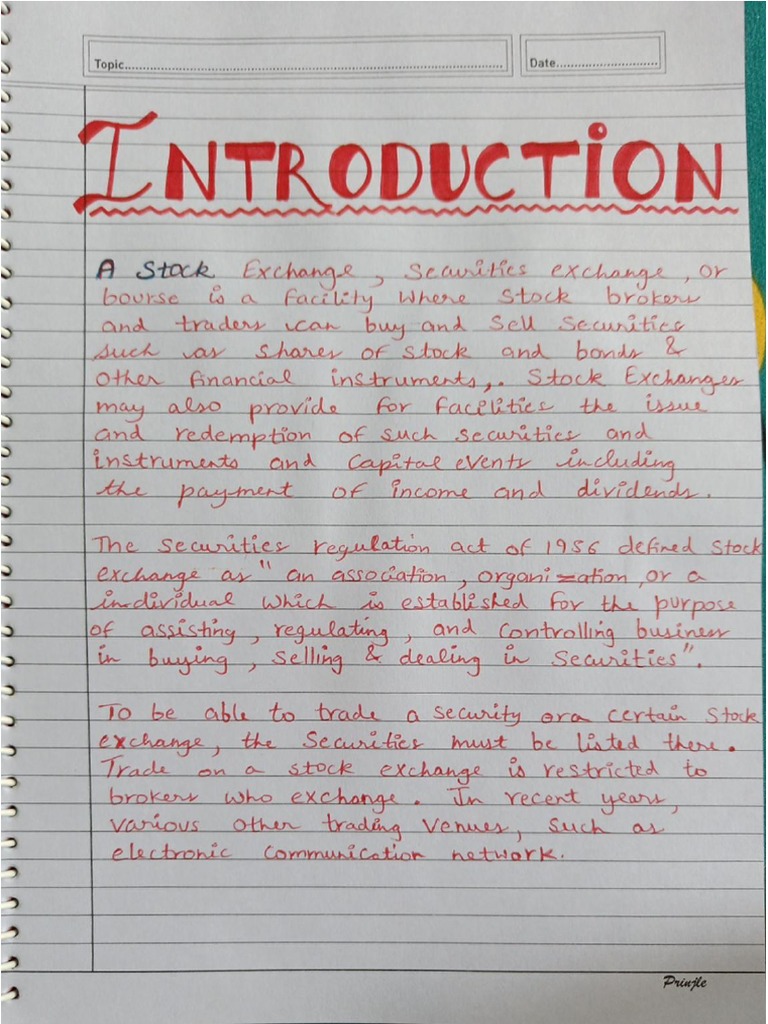 Topic..........................................................................................................
Date............................
INTRODUCTION
A Stock Exchange, Securities exchange, or
bourse is a facility where stock brokers
and traders can buy and sell securities
such as shares of stock and bonds &
other financial instruments,. Stock Exchanges
may also provide for facilities the issue
and redemption of such securities and
instruments and capital events including
the payment of income and dividends.
The securities regulation act of 1956 defined stock
exchange as " an association, organization, or a
individual which is established for the purpose
of assisting, regulating, and controlling business
in buying, selling & dealing in securities".
To be able to trade a security ora certain stock
exchange, the securities must be listed there.
Trade on a stock exchange is restricted to
brokers who exchange. In recent years,
various other trading venues, such as
electronic communication network.
Prinjle